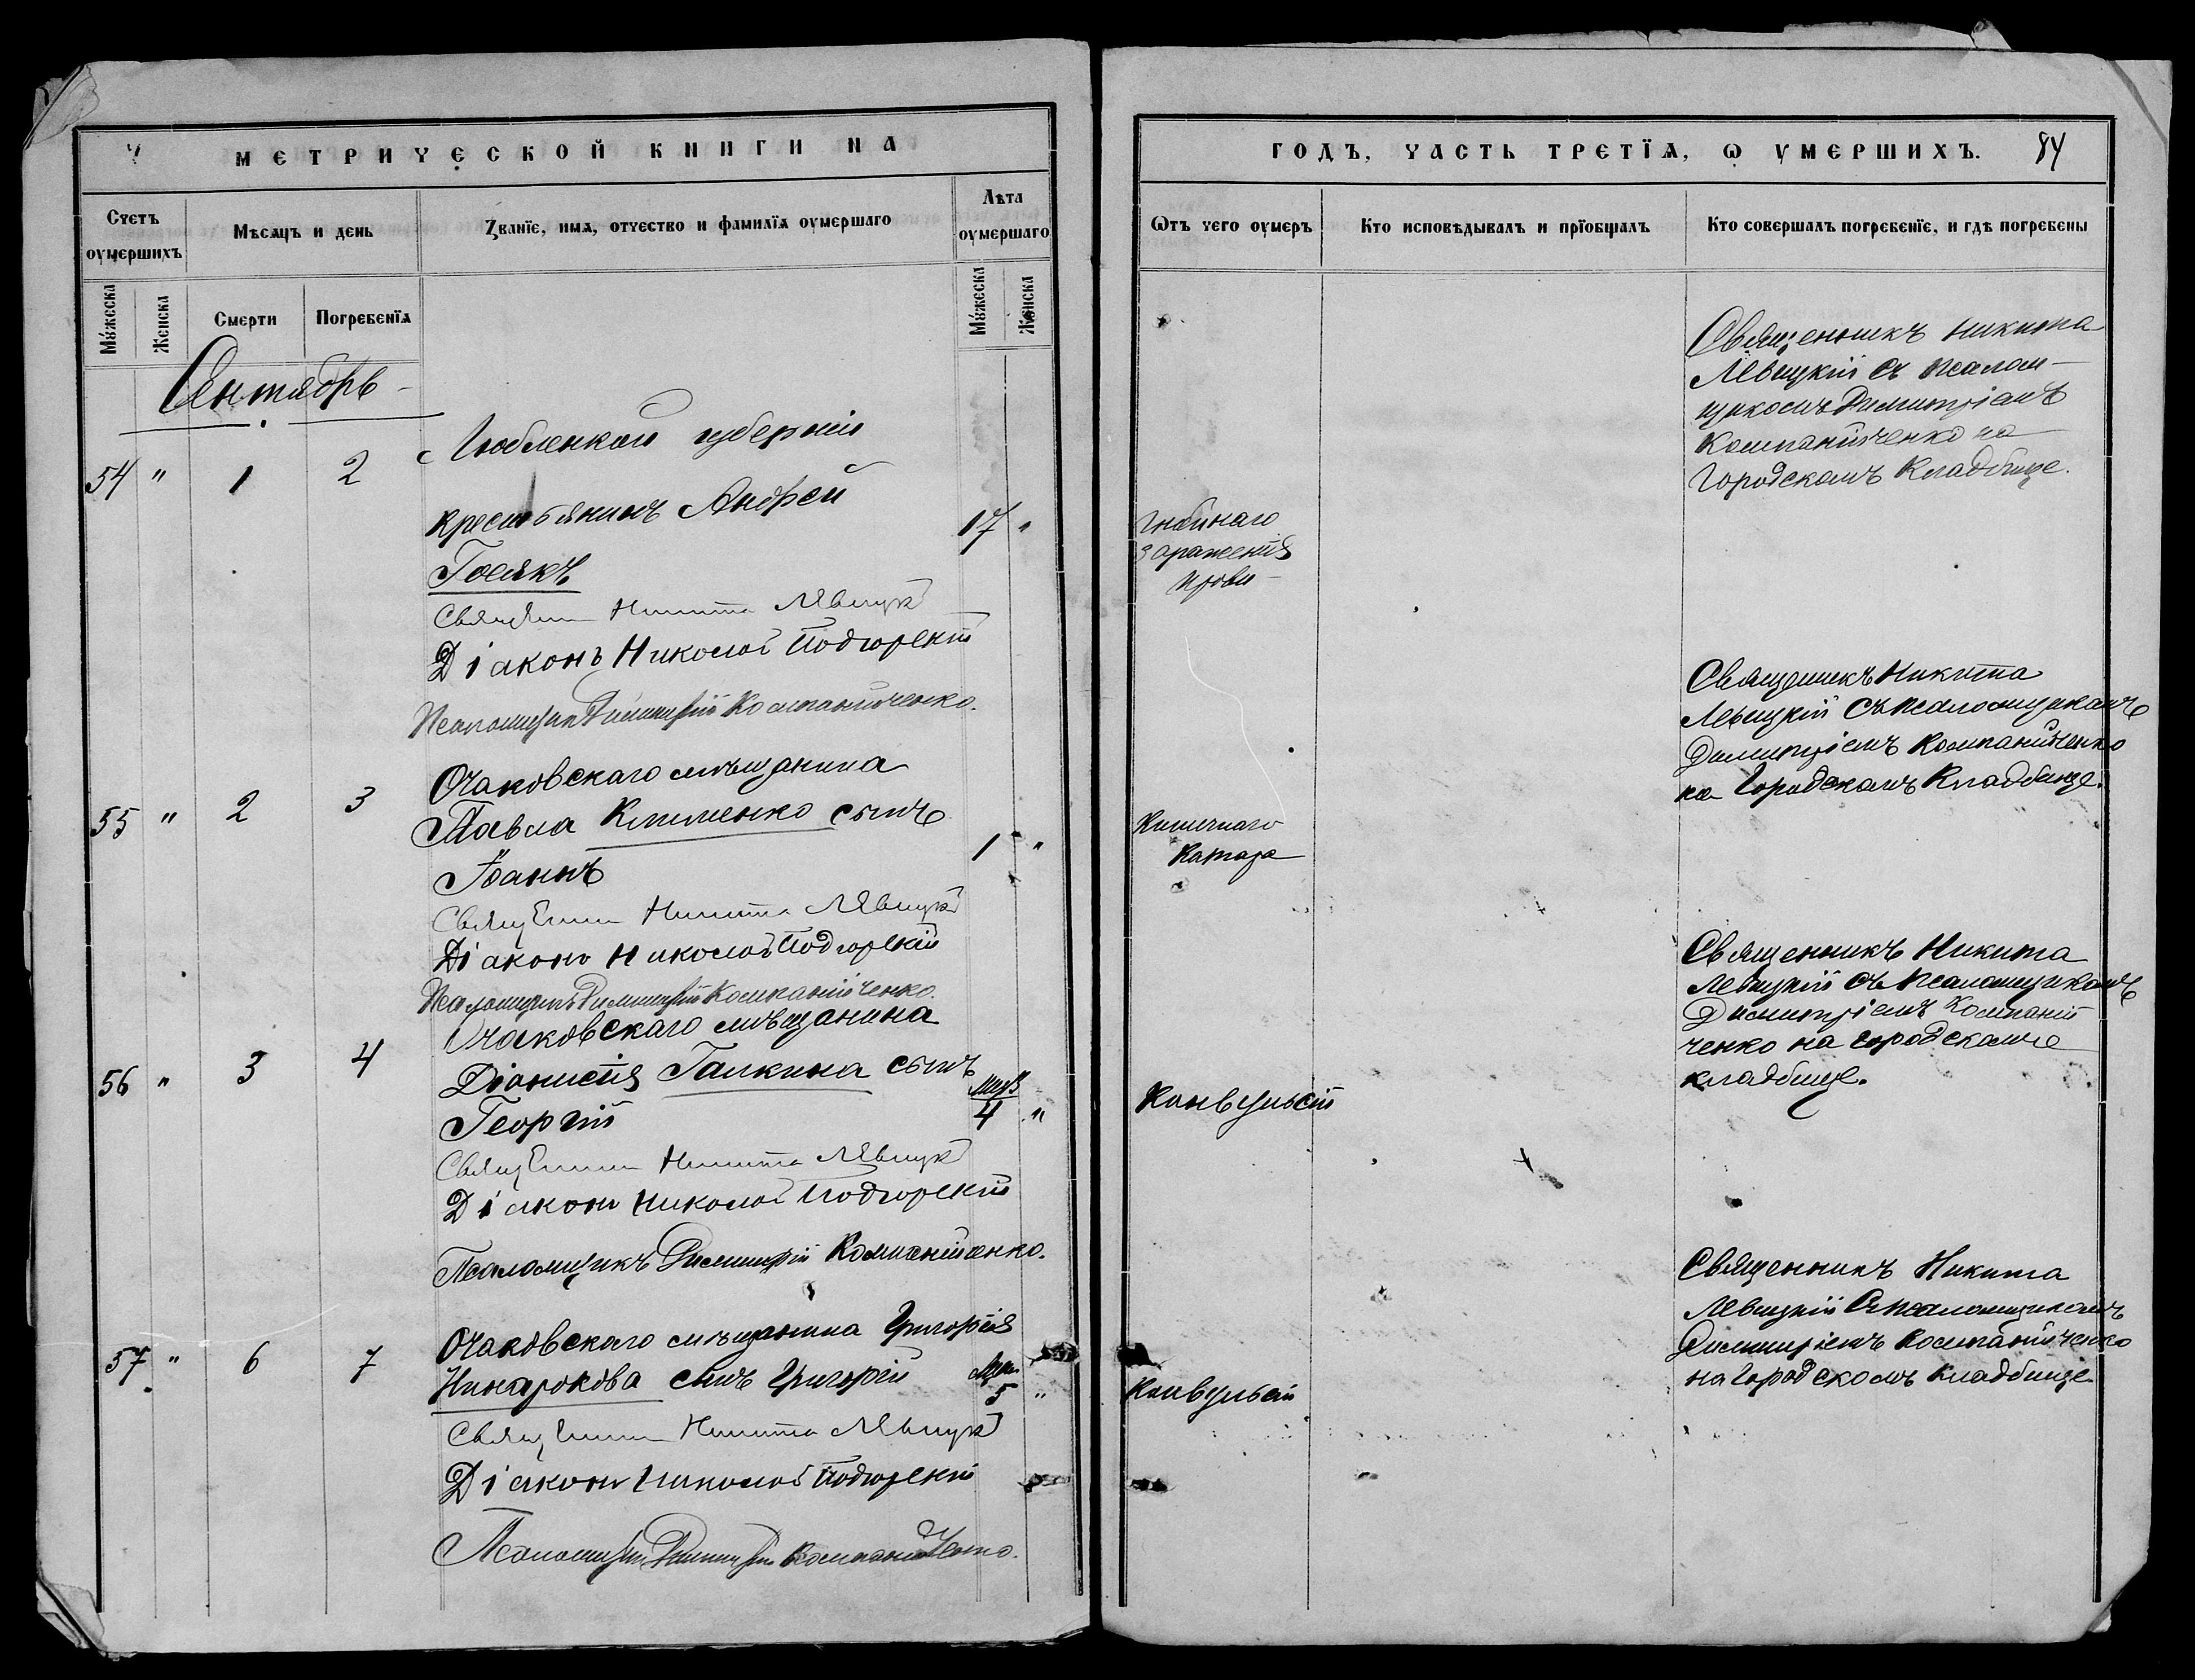 МЕТРИЧЕСКОЙ КНИГИ НА
Счетъ оумершихъ
Мѣсяцъ и день
Званіе, имя, отчество и фамилія оумершаго
Лѣта оумершаго
Мужеска
Женска
Смерти
Погребенія
Мужеска
Женска
Сентябрь
54 " 1 2
Люблинской губерніи
крестьянинъ Андрей
17 "
Священникъ Никита Лѣвицкій
Діаконъ Николай Подгорскій
Псаломщикъ Димитрій Компанійченко.
55 " 2 3
Очаковскаго мѣщанина
Павла Клименко сынъ
Іоаннъ
1 "
Священникъ Никита Лѣвицкій
Діаконъ Николай Подгорскій
Псаломщикъ Димитрій Компанійченко.
56 " 3 4
Очаковскаго мѣщанина
Діонисія Галкина сынъ
Георгій
4 "
Священникъ Никита Лѣвицкій
Діаконъ Николай Подгорскій
Псаломщикъ Димитрій Компанійченко.
57 " 6 7
Очаковскаго мѣщанина Григорія
сынъ Григорій
5 "
Священникъ Никита Лѣвицкій
Діаконъ Николай Подгорскій
Псаломщикъ Димитрій Компанійченко.
ГОДЪ, ЧАСТЬ ТРЕТІЯ, Ѡ УМЕРШИХЪ.
84
Ѿтъ чего оумеръ
Кто исповѣдывалъ и пріобщалъ
Кто совершалъ погребеніе, и гдѣ погребены
Гнойнаго
зараженія
крови
Священникъ Никита
Лѣвицкій съ псалом-
щикомъ Димитріемъ
Компанійченко на
Городскомъ Кладбище.
Кишечнаго
Катара
Священникъ Никита
Лѣвицкій съ псаломщикомъ
Димитріемъ Компанійченко
на Городскомъ Кладбище.
Конвульсій
Священникъ Никита
Лѣвицкій съ псаломщикомъ
Димитріемъ Компаній
ченко на городскомъ
кладбище.
Конвульсій
Священникъ Никита
Лѣвицкій съ псаломщикомъ
Димитріемъ Компанійченко
на Городскомъ Кладбище.